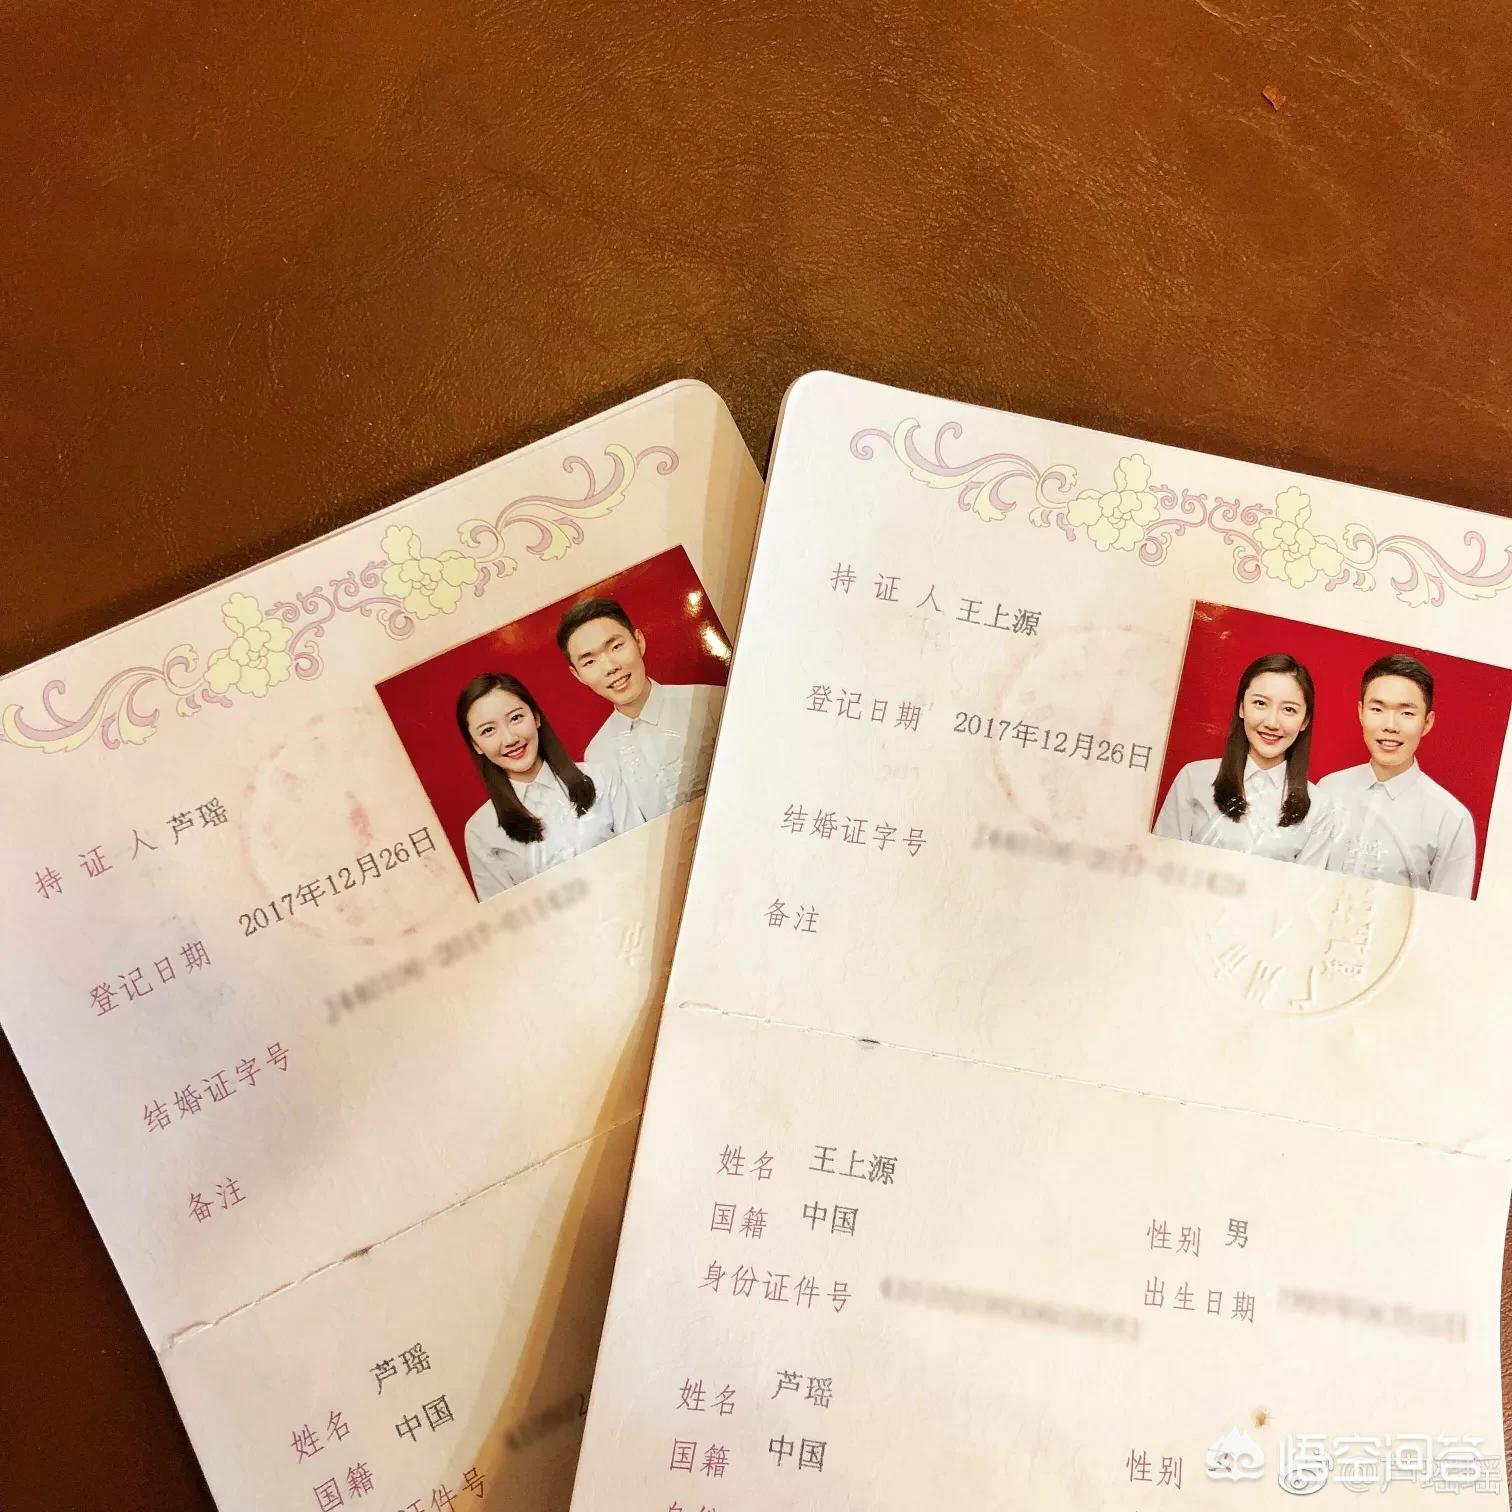 持证人 芦瑶
登记日期 2017年12月26日
结婚证字号
备注
姓名 芦瑶
国籍 中国
持证人 王上源
登记日期 2017年12月26日
结婚证字号
备注
姓名 王上源
国籍 中国 性别 男
身份证件号 出生日期
姓名 芦瑶
国籍 中国 性别
悟空问答